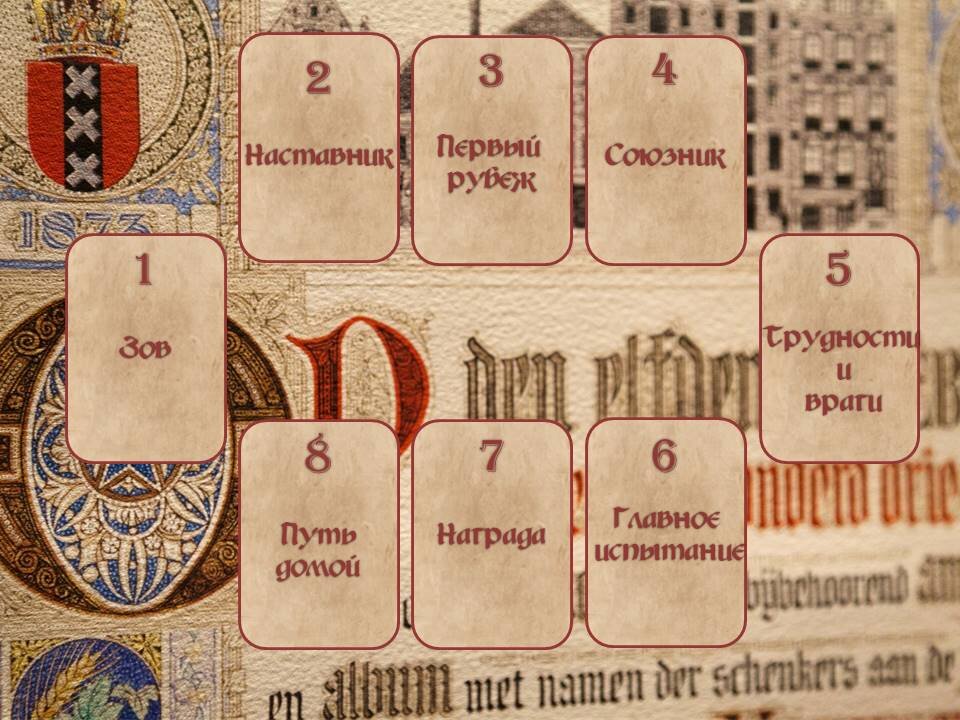 2
Наставник
3
Первый
рубеж
4
Союзник
1873
1
Зов
5
Трудности
и
враги
den
8
Путь
домой
7
Награда
6
Главное
испытание
en album met namen der schenkers aan de